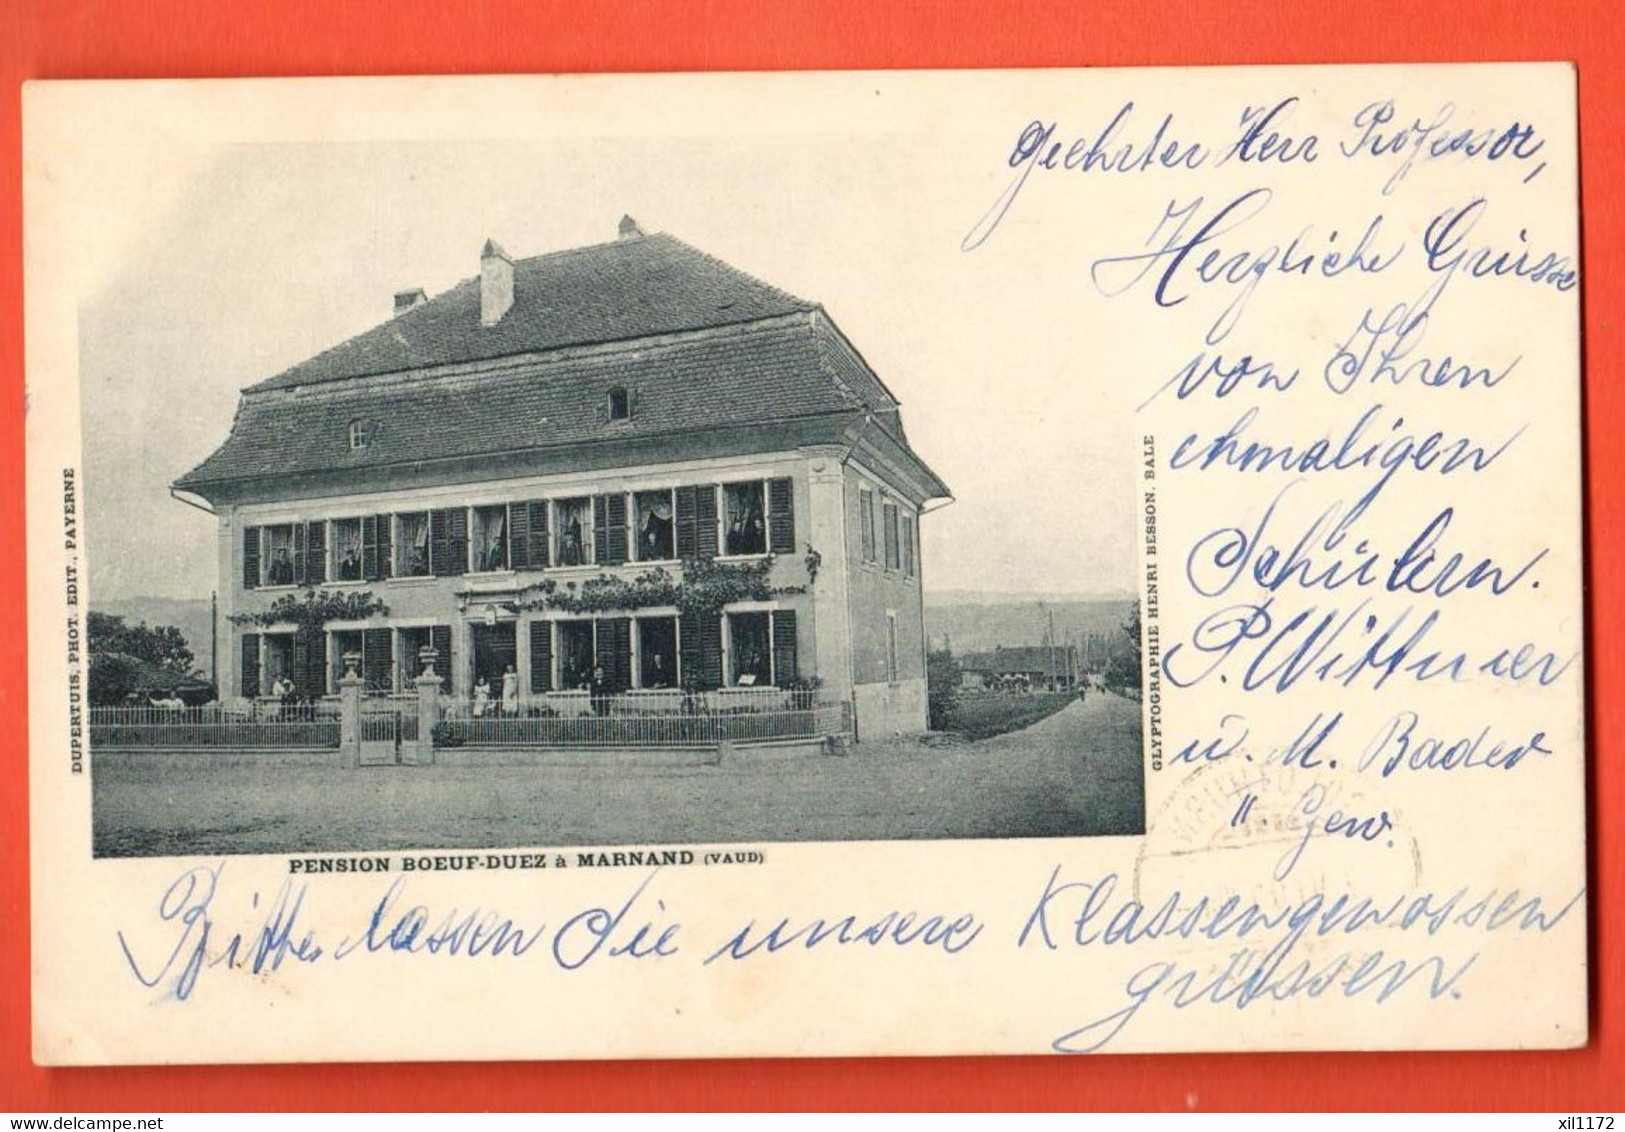 Geehrter Herr Professor,
Herzliche Grüsse
von Ihren
ehmaligen
Schülern.
P. Wittmer
u. M. Bader
" Gew.
Bitte lassen Sie unsere Klassengenossen
grüssen.
DUPERTUIS, PHOT. EDIT., PAYERNE
GLYPTOGRAPHIE HENRI BESSON, BALE
PENSION BOEUF-DUEZ à MARNAND (VAUD)
delcampe.net
xil1172